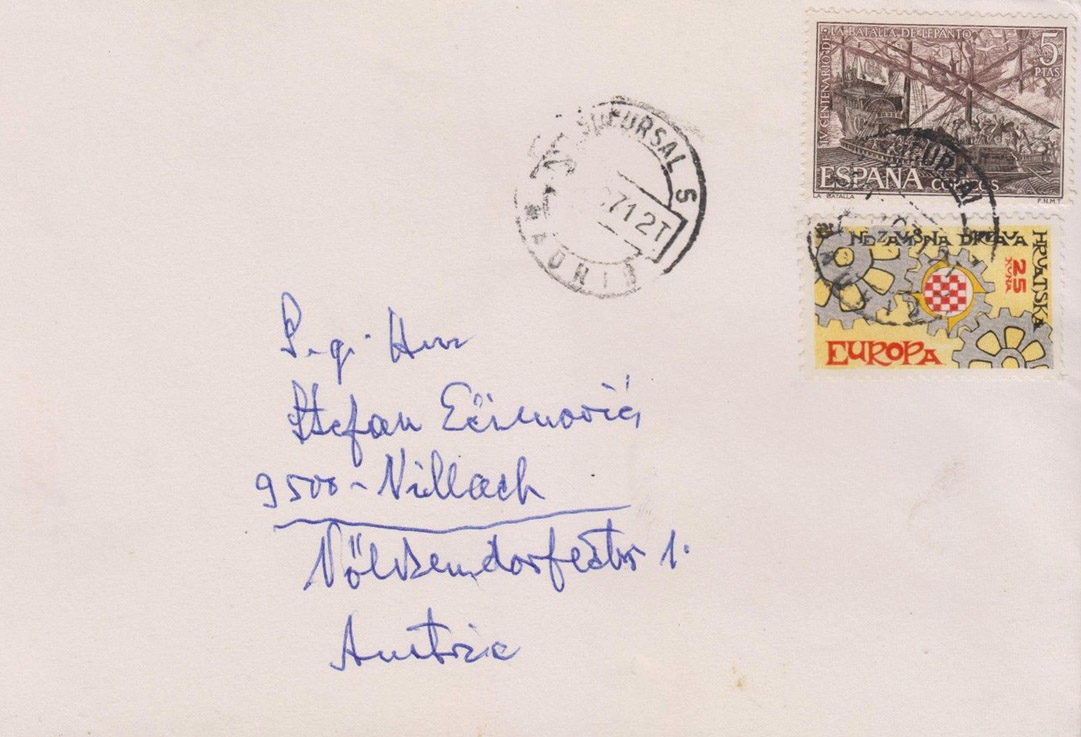 IV CENTENARIO DE LA BATALLA DE LEPANTO
5
PTAS
ESPAÑA CORREOS
LA BATALLA
F.N.M.T.
SUCURSAL 5
71 2T
MADRID
SUCURSAL
NEZAVISNA DRŽAVA
HRVATSKA
25
KUNA
EUROPA
S. g. Herr
Stefan Ećimović
9500 - Villach
Völkendorferstr 1.
Austria